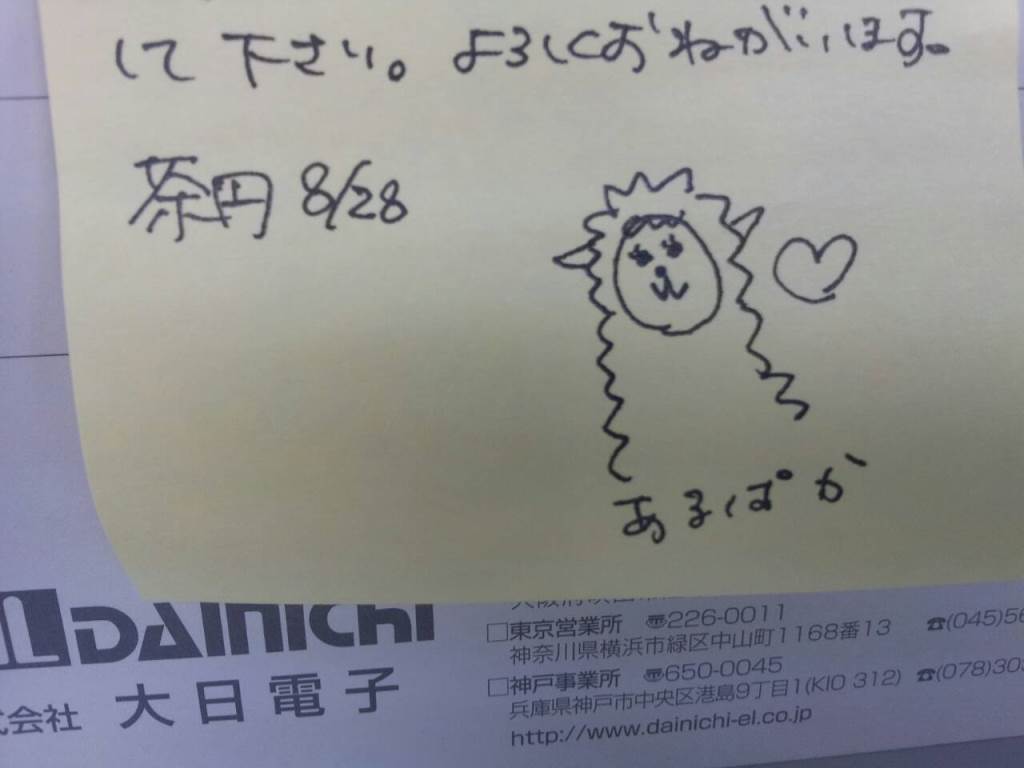 して下さい。よろしくおねがいします。
茶円 8/28
あるぱか
DAINICHI
式会社 大日電子
□東京営業所 〠226-0011
神奈川県横浜市緑区中山町1168番13 ☎(045)56
□神戸事業所 〠650-0045
兵庫県神戸市中央区港島9丁目1(KIO 312) ☎(078)303
http://www.dainichi-el.co.jp